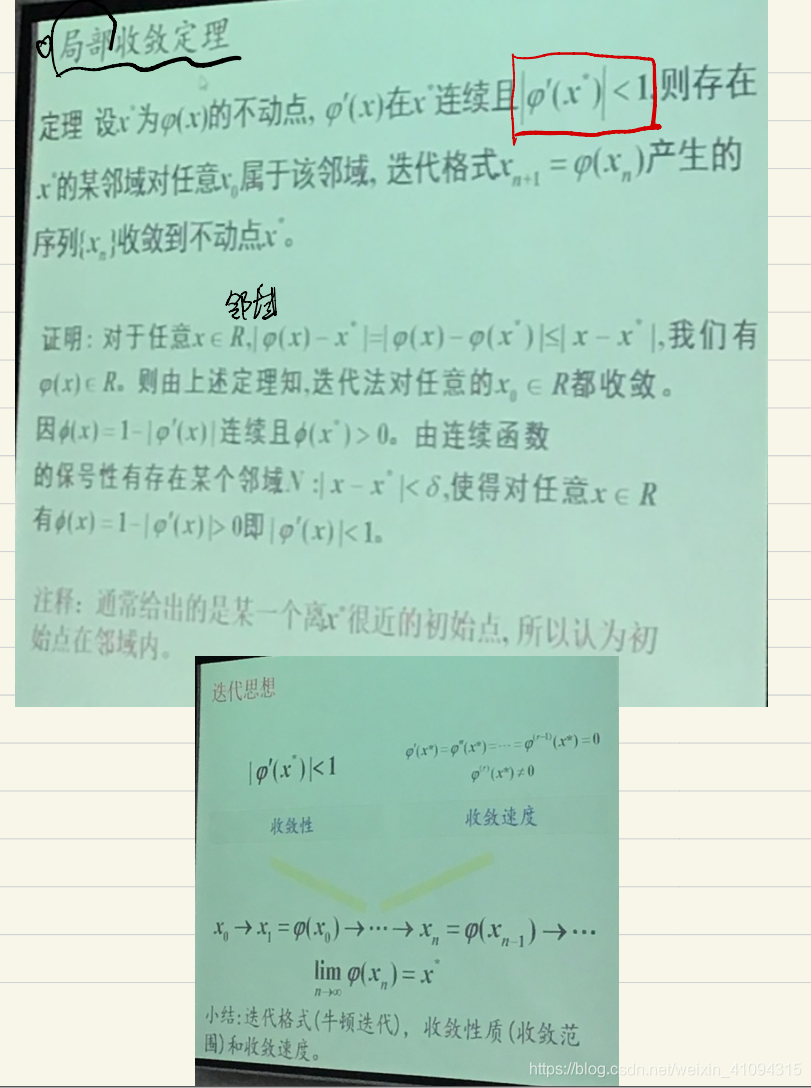 局部收敛定理
定理 设x*为φ(x)的不动点, φ′(x)在x*连续且|φ′(x*)|<1,则存在
x*的某邻域对任意x₀属于该邻域, 迭代格式xₙ₊₁=φ(xₙ)产生的
序列{xₙ}收敛到不动点x*。
邻域
证明: 对于任意x∈R,|φ(x)-x*|=|φ(x)-φ(x*)|≤|x-x*|,我们有
φ(x)∈R。则由上述定理知,迭代法对任意的x₀∈R都收敛。
因ϕ(x)=1-|φ′(x)|连续且ϕ(x*)>0。由连续函数
的保号性有存在某个邻域N:|x-x*|<δ,使得对任意x∈R
有ϕ(x)=1-|φ′(x)|>0即|φ′(x)|<1。
注释: 通常给出的是某一个离x*很近的初始点, 所以认为初
始点在邻域内。
迭代思想
φ′(x*)=φ″(x*)=⋯=φ⁽ʳ⁻¹⁾(x*)=0
|φ′(x*)|<1
φ⁽ʳ⁾(x*)≠0
收敛性 收敛速度
x₀→x₁=φ(x₀)→⋯→xₙ=φ(xₙ₋₁)→⋯
lim φ(xₙ)=x*
n→∞
小结:迭代格式(牛顿迭代), 收敛性质(收敛范
围)和收敛速度。
https://blog.csdn.net/weixin_41094315